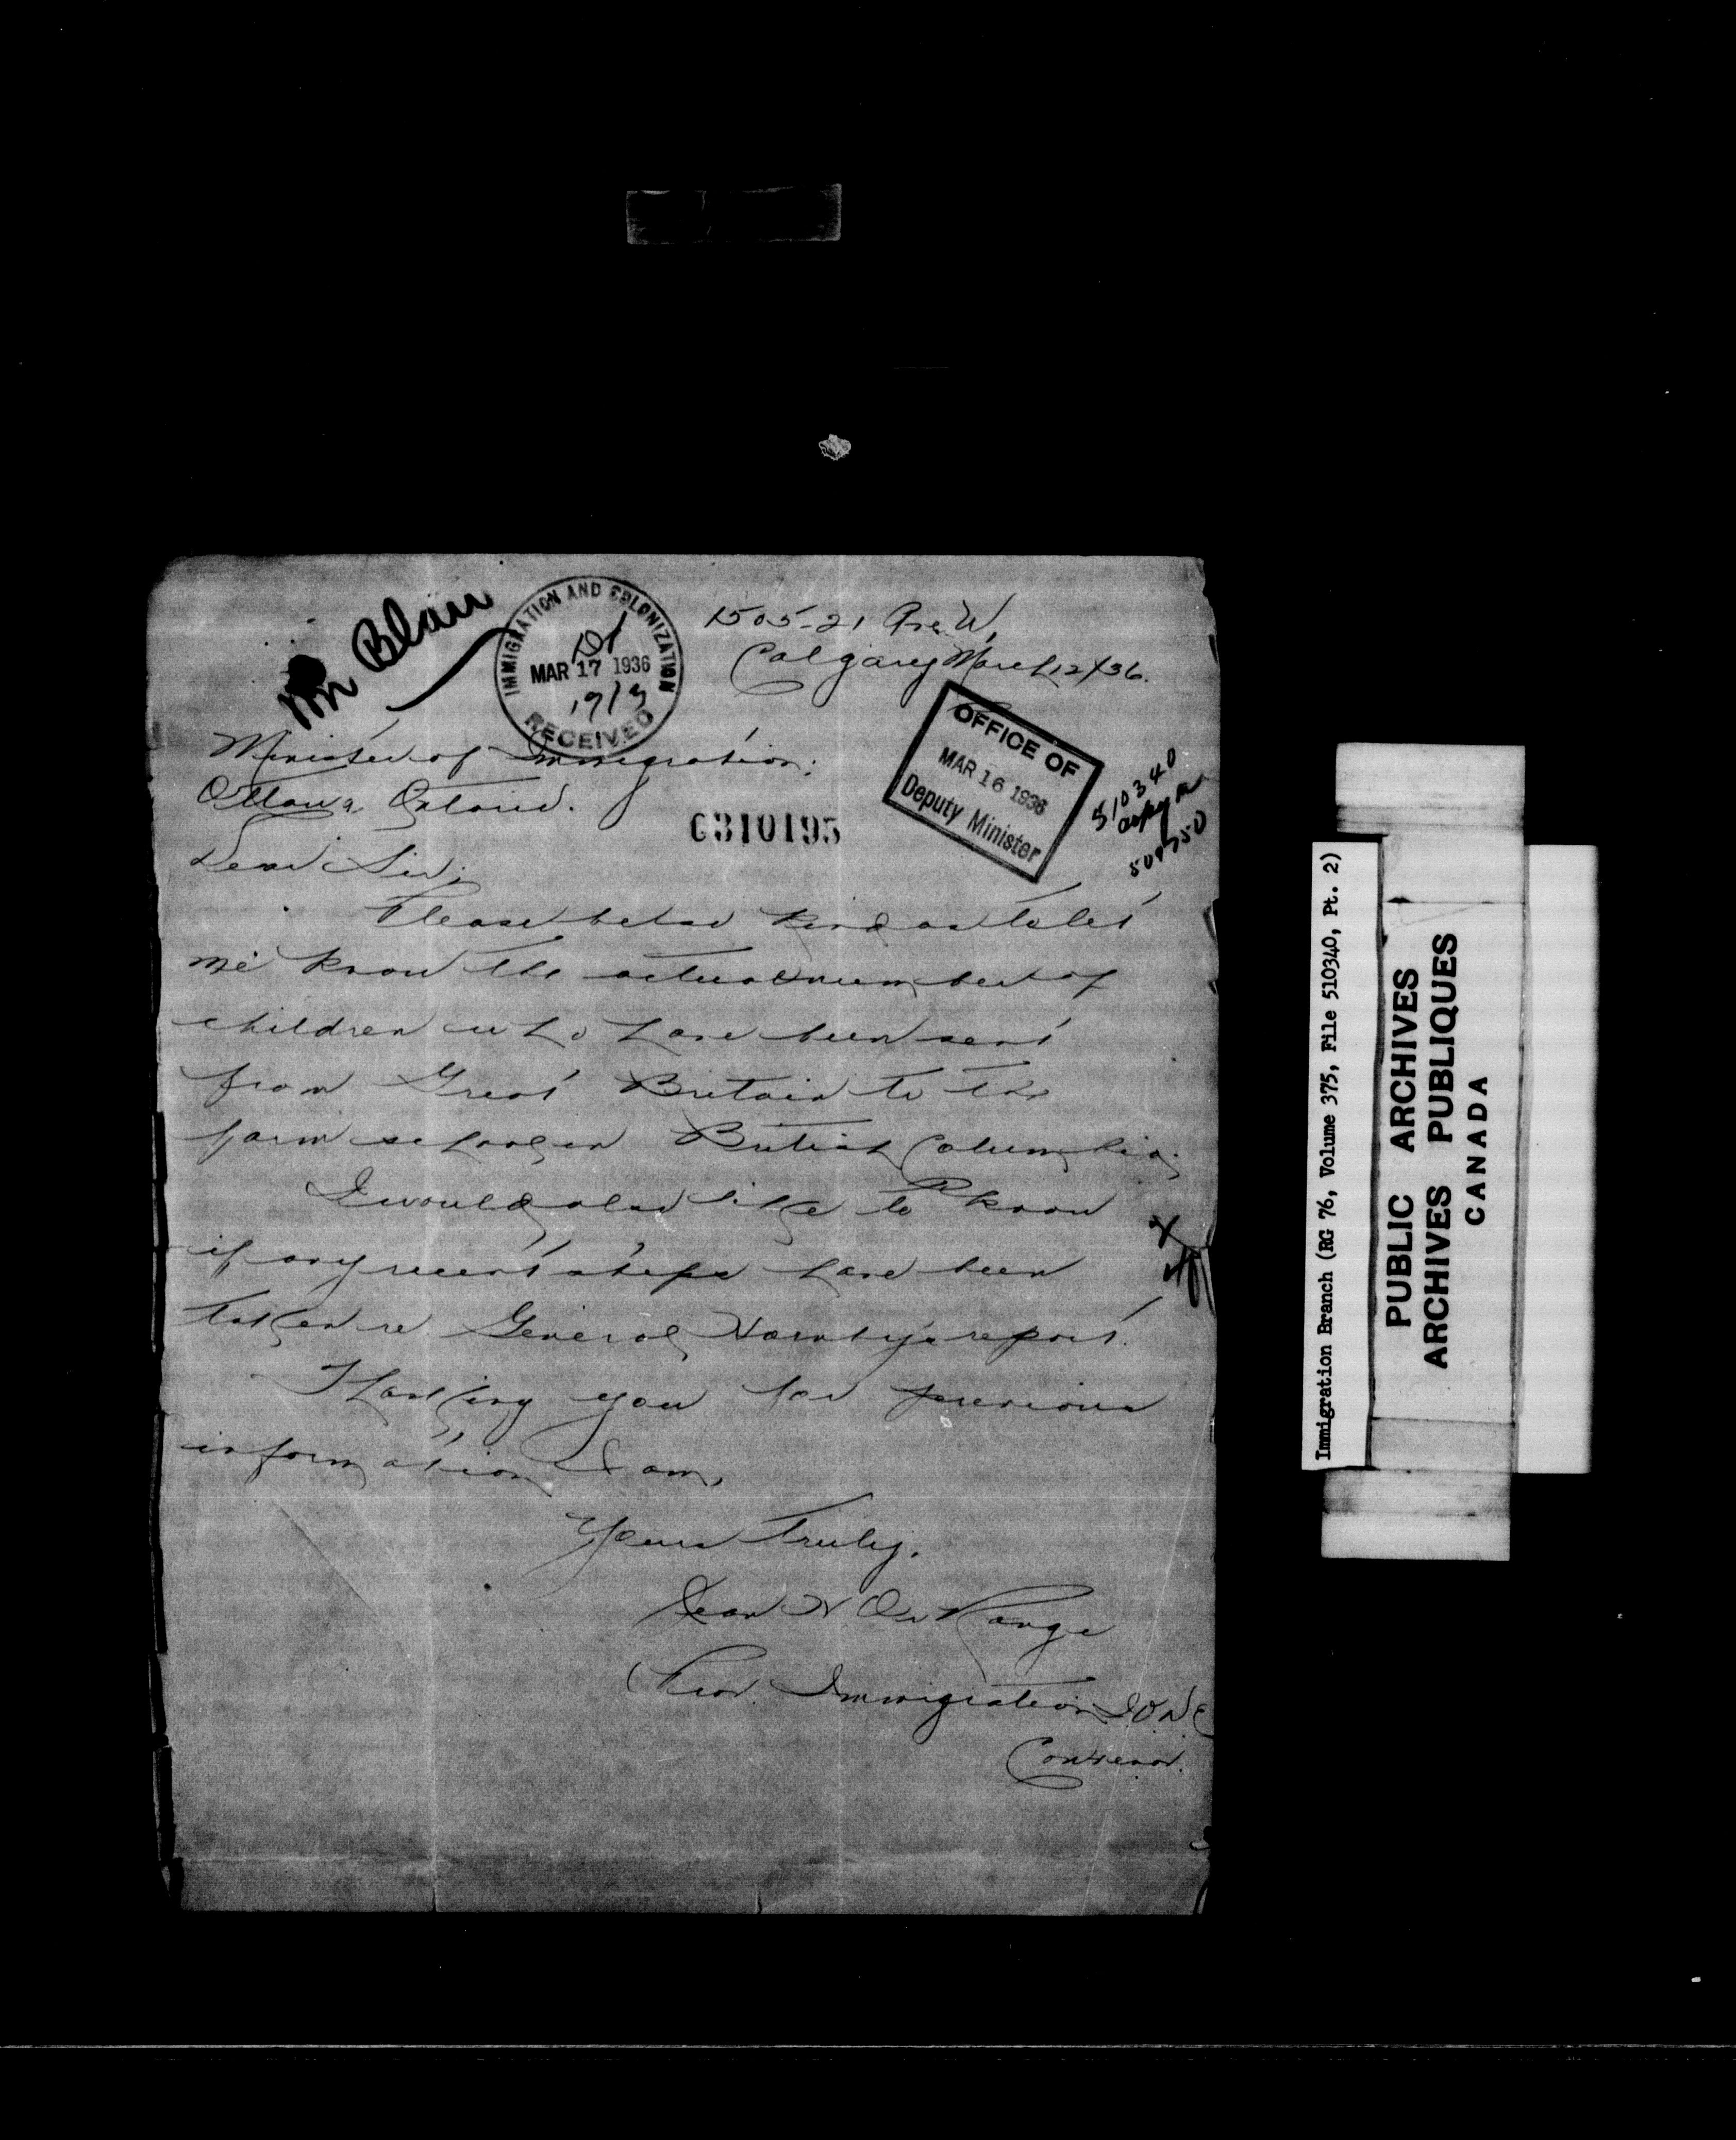 Mr Blair
IMMIGRATION AND COLONIZATION
MAR 17 1936
RECEIVED
1505-21 Ave W,
Calgary March 12/36.
OFFICE OF
MAR 16 1936
Deputy Minister
510340
copy on
Minister of Immigration;
Ottawa, Ontario.
6310195
Dear Sir;
Please be so kind as to let
me know the actual number of
children who have been sent
from Great Britain to the
farm school in British Columbia;
I would also like to know
if any recent steps have been
taken re General Hornby's report.
Thanking you for previous
information I am,
Yours Truly.
Jean H De Range
Prov. Immigration I O D E
Convenor.
Immigration Branch (RG 76, Volume 375, File 510340, Pt. 2)
PUBLIC ARCHIVES
ARCHIVES PUBLIQUES
CANADA